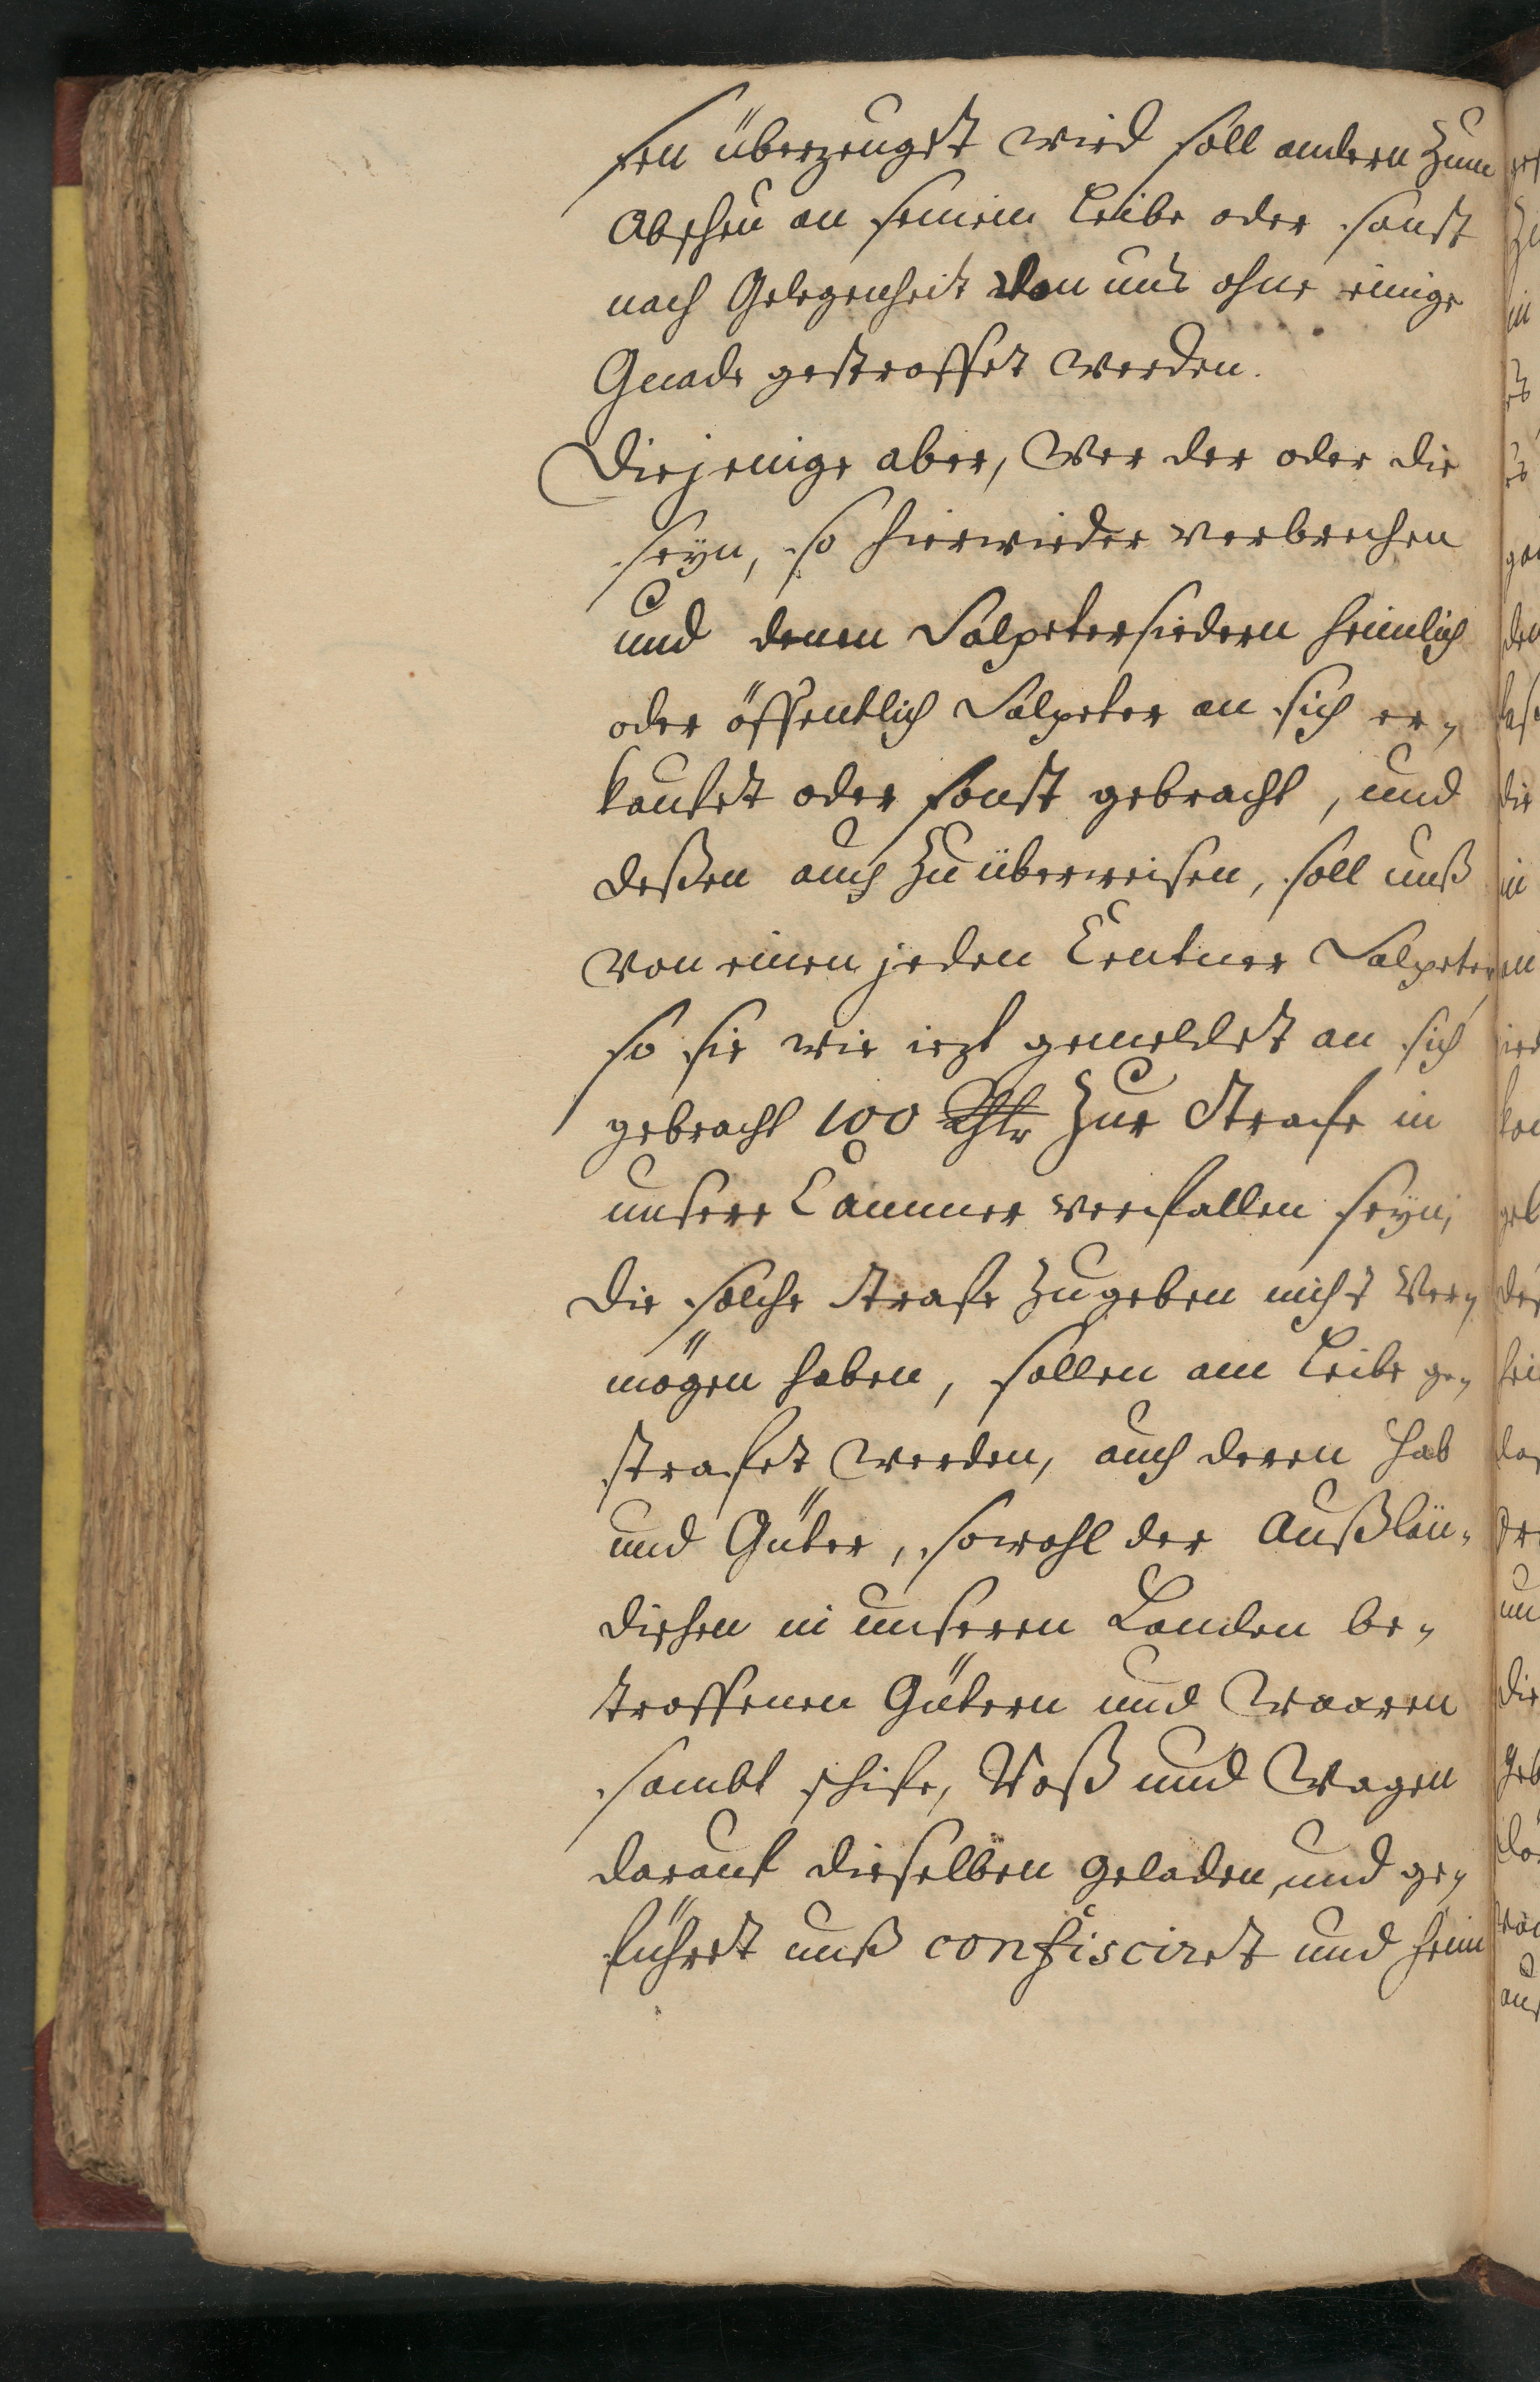 sen überzeuget wird soll andern zum
Abscheu an seinem Leibe oder sonst
nach Gelegenheit von uns ohne einige
Gnade gestraffet werden.
Diejenige aber, Wer der oder die
seyn, so hierwieder verbrechen
und denen Salpetersiedern heimlich
oder öffentlich Salpeter an sich er„
kaufet oder sonst gebracht, und
deßen auch zu überweisen, soll unß
von einen jeden Centner Salpeter,
so sie wie iezt gemeldet an sich
gebracht 100 Rthlr zur Strafe in
unsere Cammer verfallen seyn,
die solche Strafe zugeben nicht Ver„
mögen haben, sollen am Leibe ge„
strafet werden, auch deren Hab
und Güter, sowohl der Außlän„
dischen in unseren Landen be„
troffenen Gütern und Waaren
sambt schife, Roß und Wagen
darauf dieselben geladen, und ge„
führet unß confisciret und heim